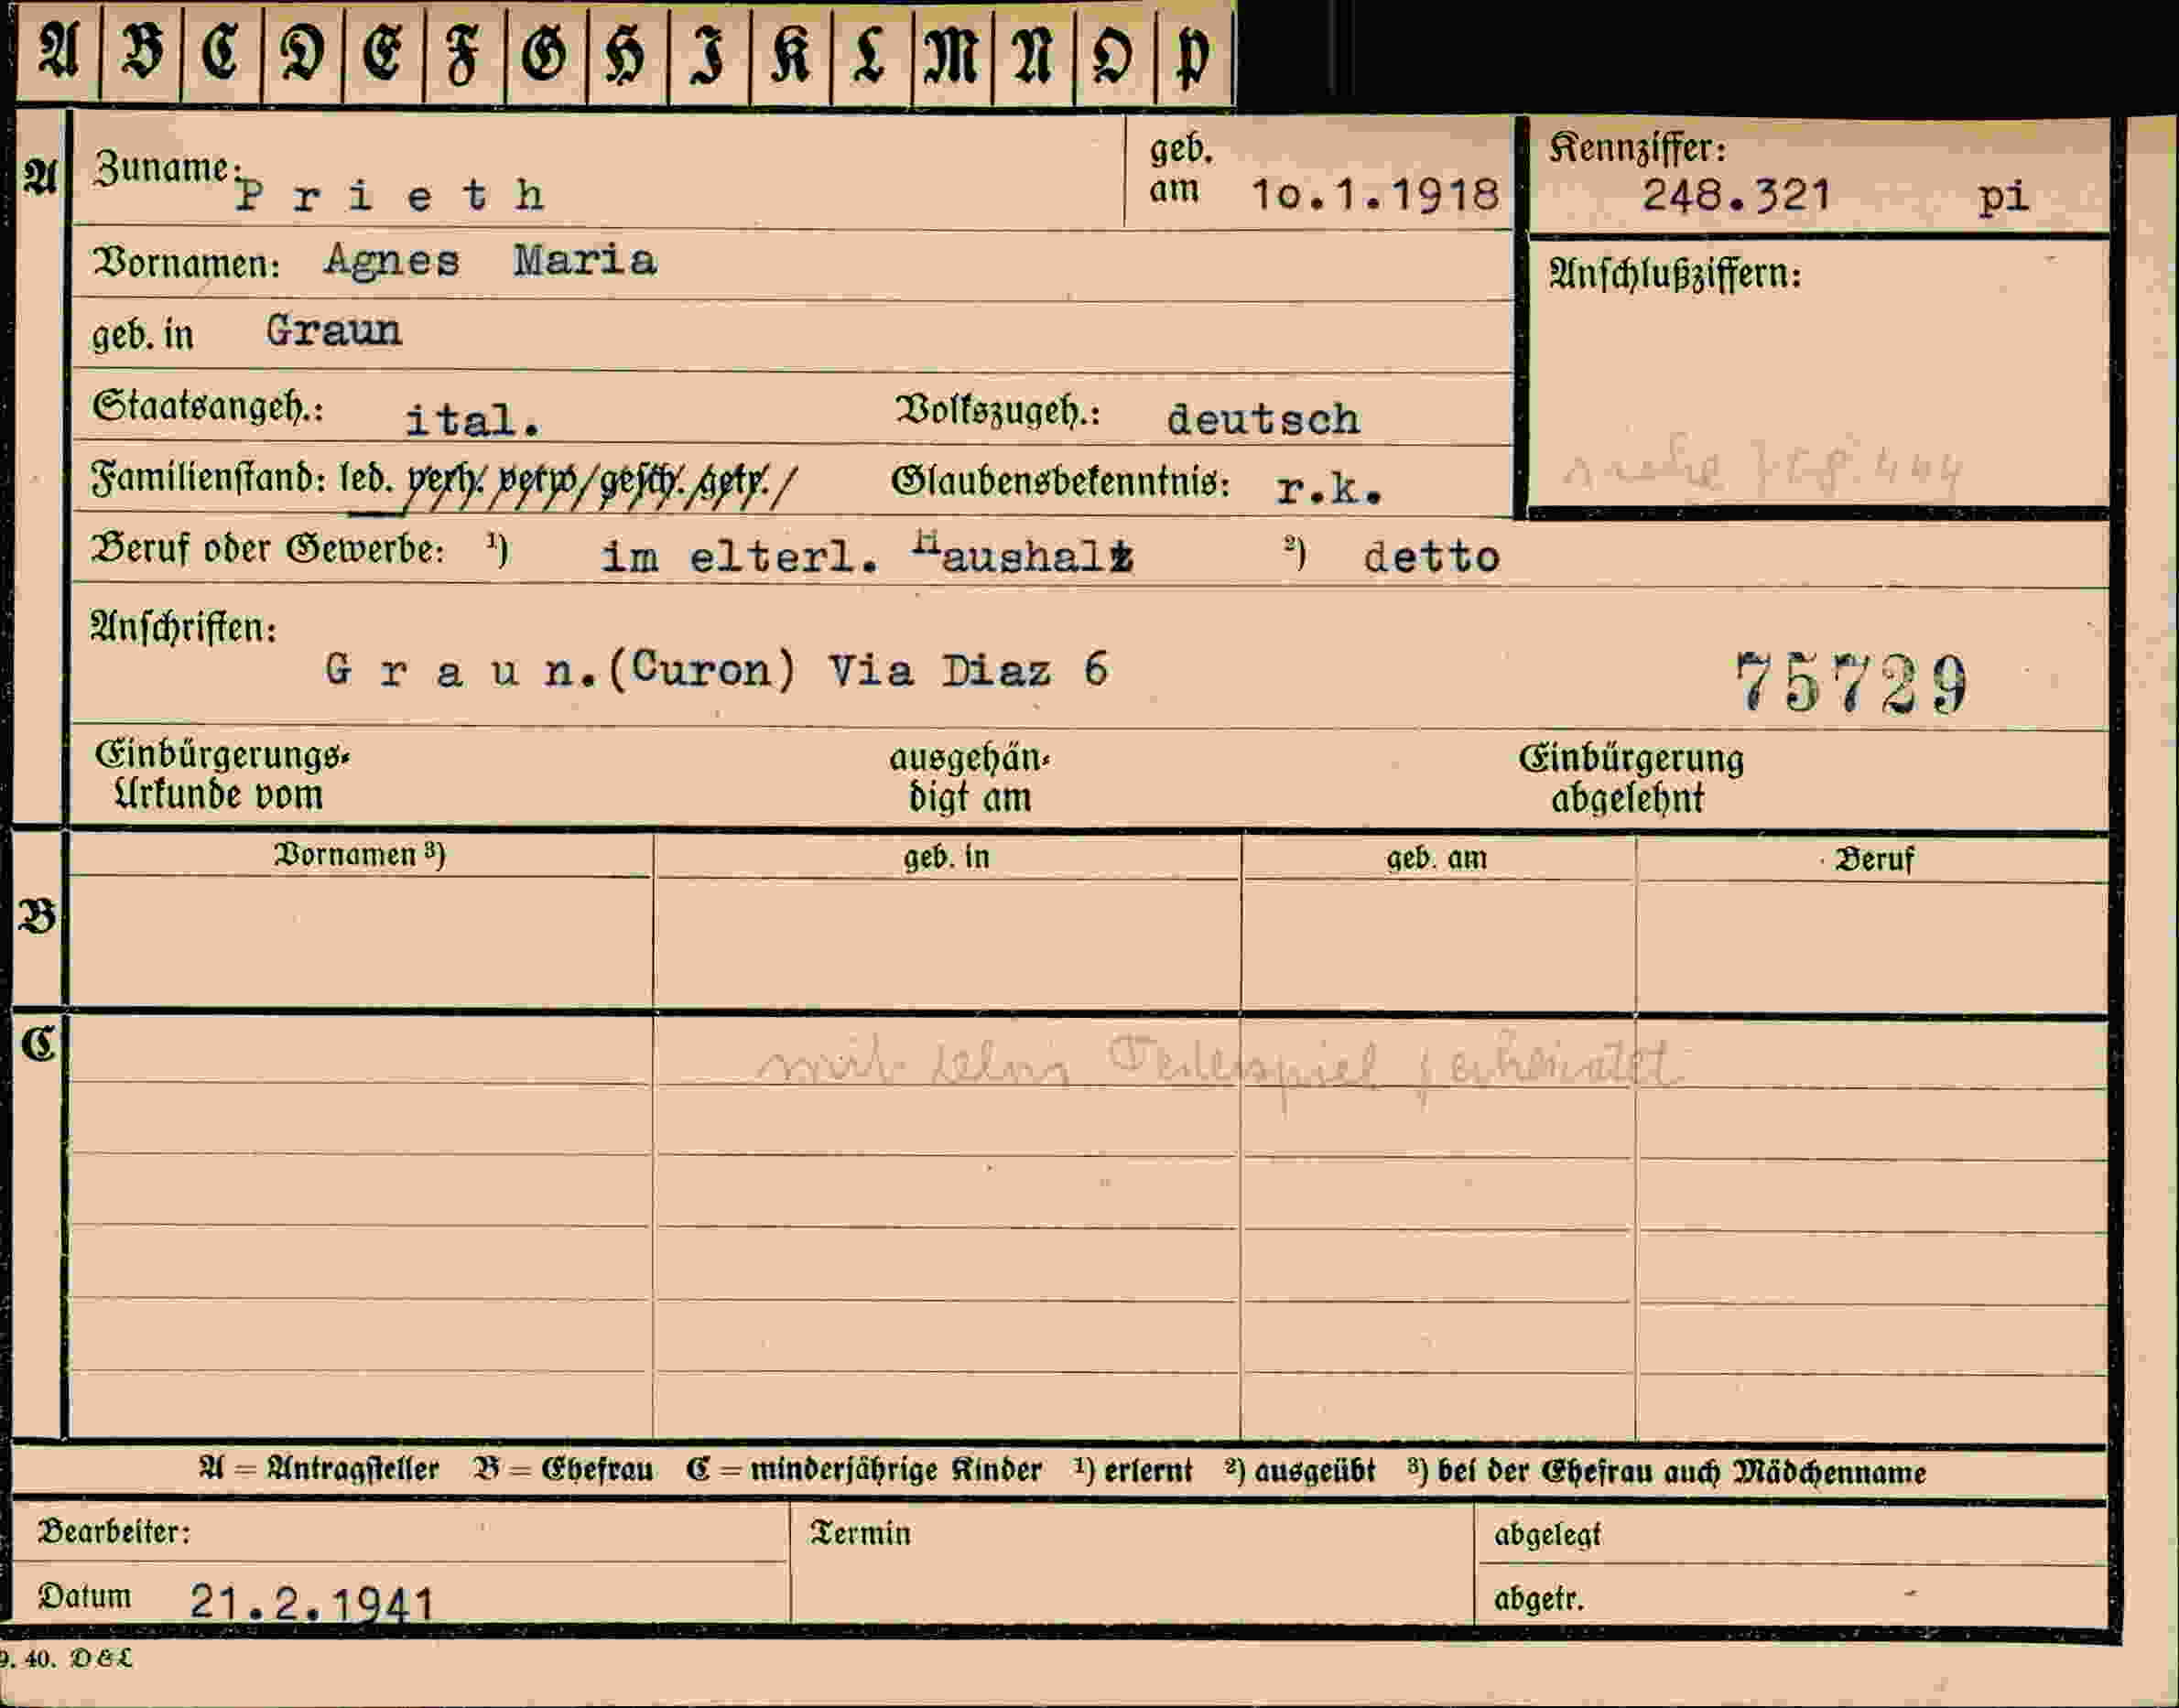 A B C D E F G H I K L M N O P
A
Zuname: Prieth
geb. am 10.1.1918
Kennziffer: 248.321 pi
Vornamen: Agnes Maria
Anschlußziffern:
geb. in Graun
Staatsangeh.: ital. Volkszugeh.: deutsch
Familienstand: led. verh. verw. gesch. getr. Glaubensbekenntnis: r.k.
Beruf oder Gewerbe: ¹) im elterl. Haushalt ²) detto
Anschriften:
Graun.(Curon) Via Diaz 6
75729
Einbürgerungs-Urkunde vom
ausgehändigt am
Einbürgerung abgelehnt
Vornamen ³) geb. in geb. am Beruf
B
C
mit verheiratet
A = Antragsteller B = Ehefrau C = minderjährige Kinder ¹) erlernt ²) ausgeübt ³) bei der Ehefrau auch Mädchenname
Bearbeiter: Termin abgelegt
Datum 21.2.1941 abgetr.
9. 40. D&L